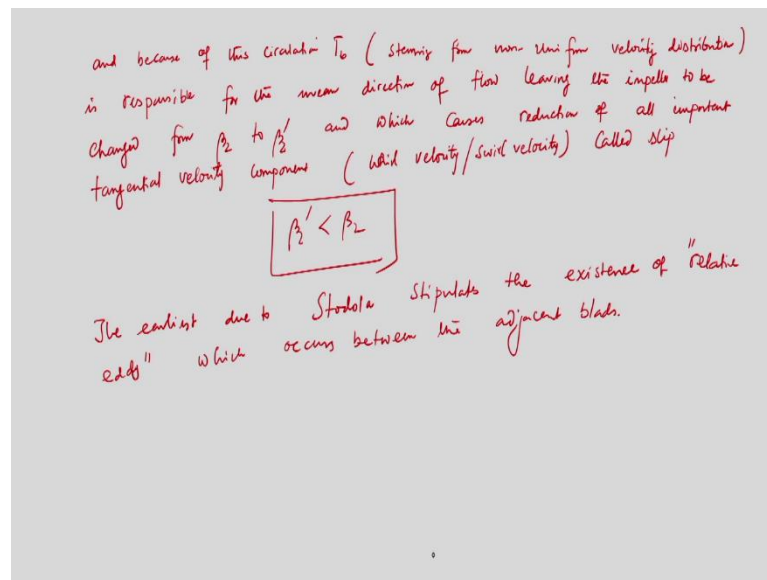 and because of this circulation Γb ( stemming from non-uniform velocity distribution )
is responsible for the mean direction of flow leaving the impeller to be
changed from β2 to β2' and which causes reduction of all important
tangential velocity component ( whirl velocity / swirl velocity ) called slip
β2' < β2
The earliest due to Stodola stipulates the existence of "relative
eddy" which occurs between the adjacent blades.